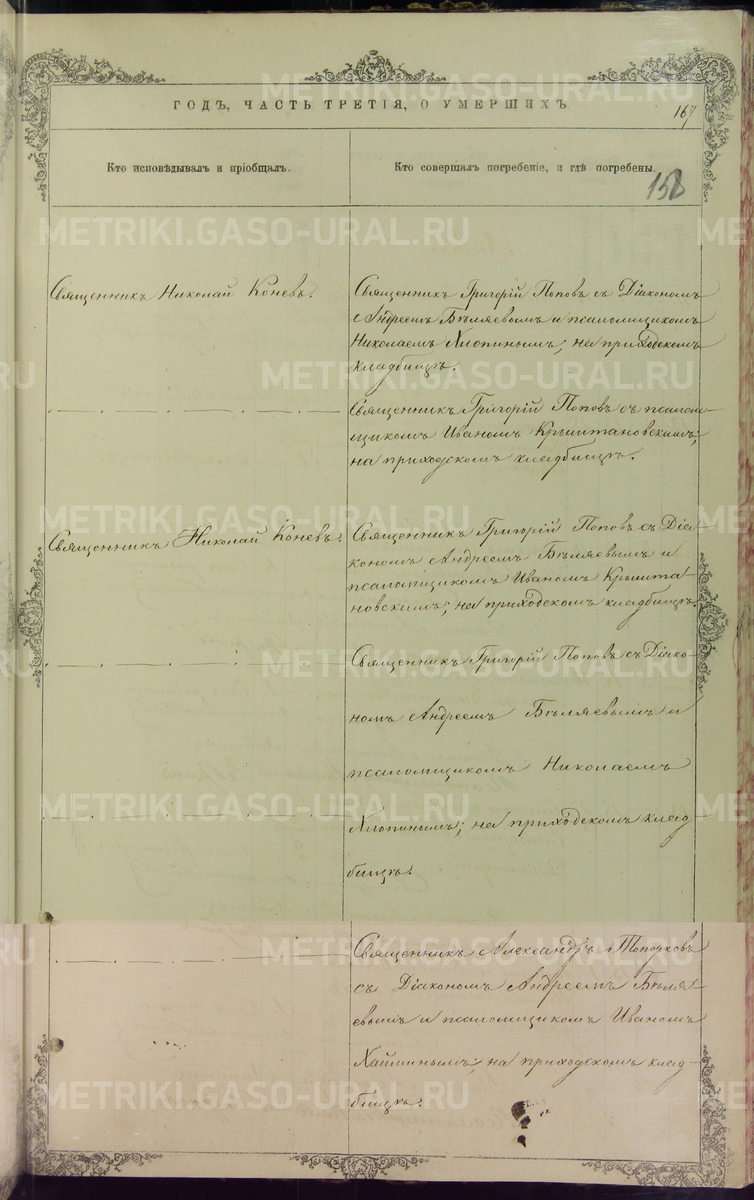 ГОДЪ, ЧАСТЬ ТРЕТІЯ, О УМЕРШИХЪ.
167
Кто исповѣдывалъ и пріобщалъ.
Кто совершалъ погребеніе, и гдѣ погребены.
158
Священникъ Николай Коневъ.
Священникъ Григорій Поповъ съ Діакономъ
с Андреемъ Бѣляевымъ и псаломщикомъ
Николаемъ Хлопинымъ; на приходскомъ
кладбищѣ.
Священникъ Григорій Поповъ съ псалом-
щикомъ Иваномъ Крыштановскимъ;
на приходскомъ кладбищѣ.
Священникъ Николай Коневъ.
Священникъ Григорій Поповъ съ Діа-
кономъ Андреемъ Бѣляевымъ и
псаломщикомъ Иваномъ Крышта-
новскимъ; на приходскомъ кладбищѣ.
Священникъ Григорій Поповъ съ Діако-
номъ Андреемъ Бѣляевымъ и
псаломщикомъ Николаемъ
Хлопинымъ; на приходскомъ клад
бищѣ.
Священникъ Александръ Топорковъ
съ Діакономъ Андреемъ Бѣля-
евымъ и псаломщикомъ Иваномъ
на приходскомъ клад-
бищѣ.
METRIKI.GASO-URAL.RU